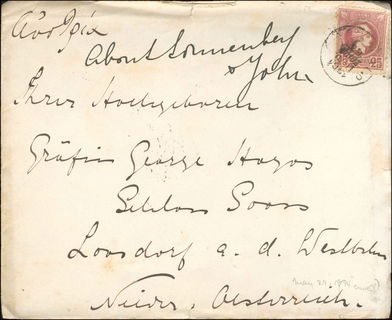 About Sonnenberg
& John
Ihrer Hochgeboren
Gräfin George Hoyos
Schloss Soos
Loosdorf a. d. Westbahn
Nieder. Oesterreich.
25 25